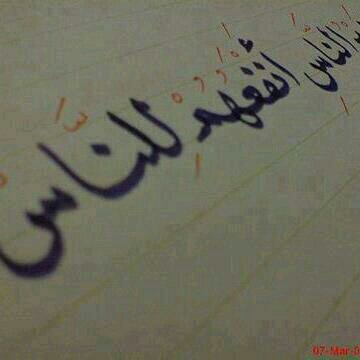 الناس أنفعهم للناس
07-Mar-0